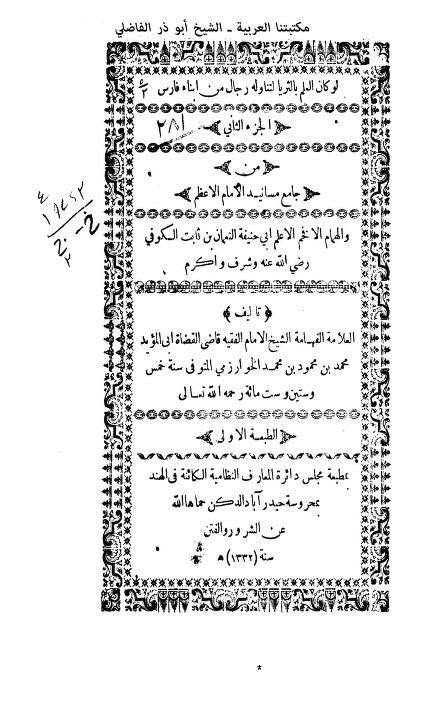 مكتبتنا العربية - الشيخ أبو ذر الفاضلي
لوكان العلم بالثريا لتناوله رجال من ابناء فارس
﴿الجزء الثاني﴾
٢٨١
﴿من﴾
﴿جامع مسانيد الامام الاعظم﴾
والهمام الافخم الاعلم ابي حنيفة النعمان بن ثابت الكوفي
رضي الله عنه وشرف واكرم
﴿تاليف﴾
العلامة الفهامة الشيخ الامام الفقيه قاضى القضاة ابى المؤيد
محمد بن محمود بن محمد الخوارزمي المتوفى سنة خمس
وستين وست مائة رحمه الله تعالى
﴿الطبعة الاولى﴾
بمطبعة مجلس دائرة المعارف النظامية الكائنة فى الهند
بمحروسة حيدرآباد الدكن حماها الله
عن الشرور والفتن
سنة (١٣٣٢) ه
*